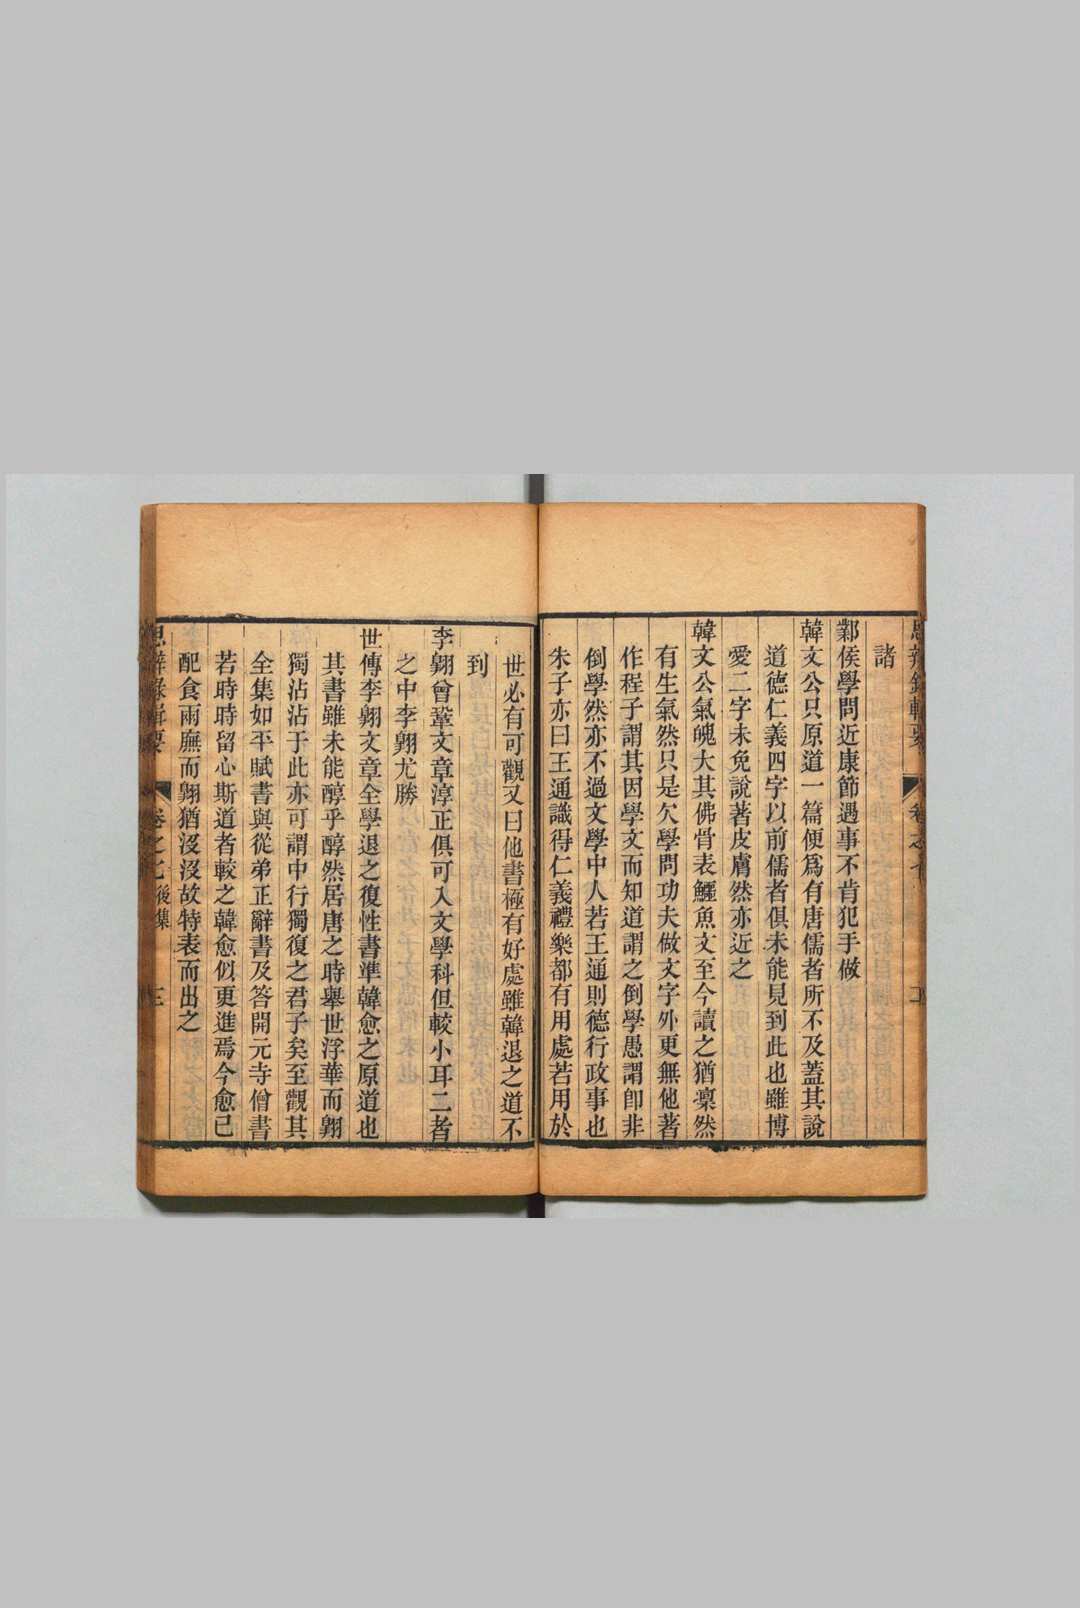 諸
鄴侯學問近康節遇事不肯犯手做
韓文公只原道一篇便爲有唐儒者所不及蓋其說
道德仁義四字以前儒者俱未能見到此也雖博
愛二字未免說著皮膚然亦近之
韓文公氣魄大其佛骨表鱷魚文至今讀之猶凜然
有生氣然只是欠學問功夫做文字外更無他著
作程子謂其因學文而知道謂之倒學愚謂卽非
倒學然亦不過文學中人若王通則德行政事也
朱子亦曰王通識得仁義禮樂都有用處若用於
世必有可觀又曰他書極有好處雖韓退之道不
到
李翺曾鞏文章淳正俱可入文學科但較小耳二者
之中李翺尤勝
世傳李翺文章全學退之復性書準韓愈之原道也
其書雖未能醇乎醇然居唐之時舉世浮華而翺
獨沾沾于此亦可謂中行獨復之君子矣至觀其
全集如平賦書與從弟正辭書及答開元寺僧書
若時時留心斯道者較之韓愈似更進焉今愈已
配食兩廡而翺猶沒沒故特表而出之
思辨錄輯要 卷之七 後集 三